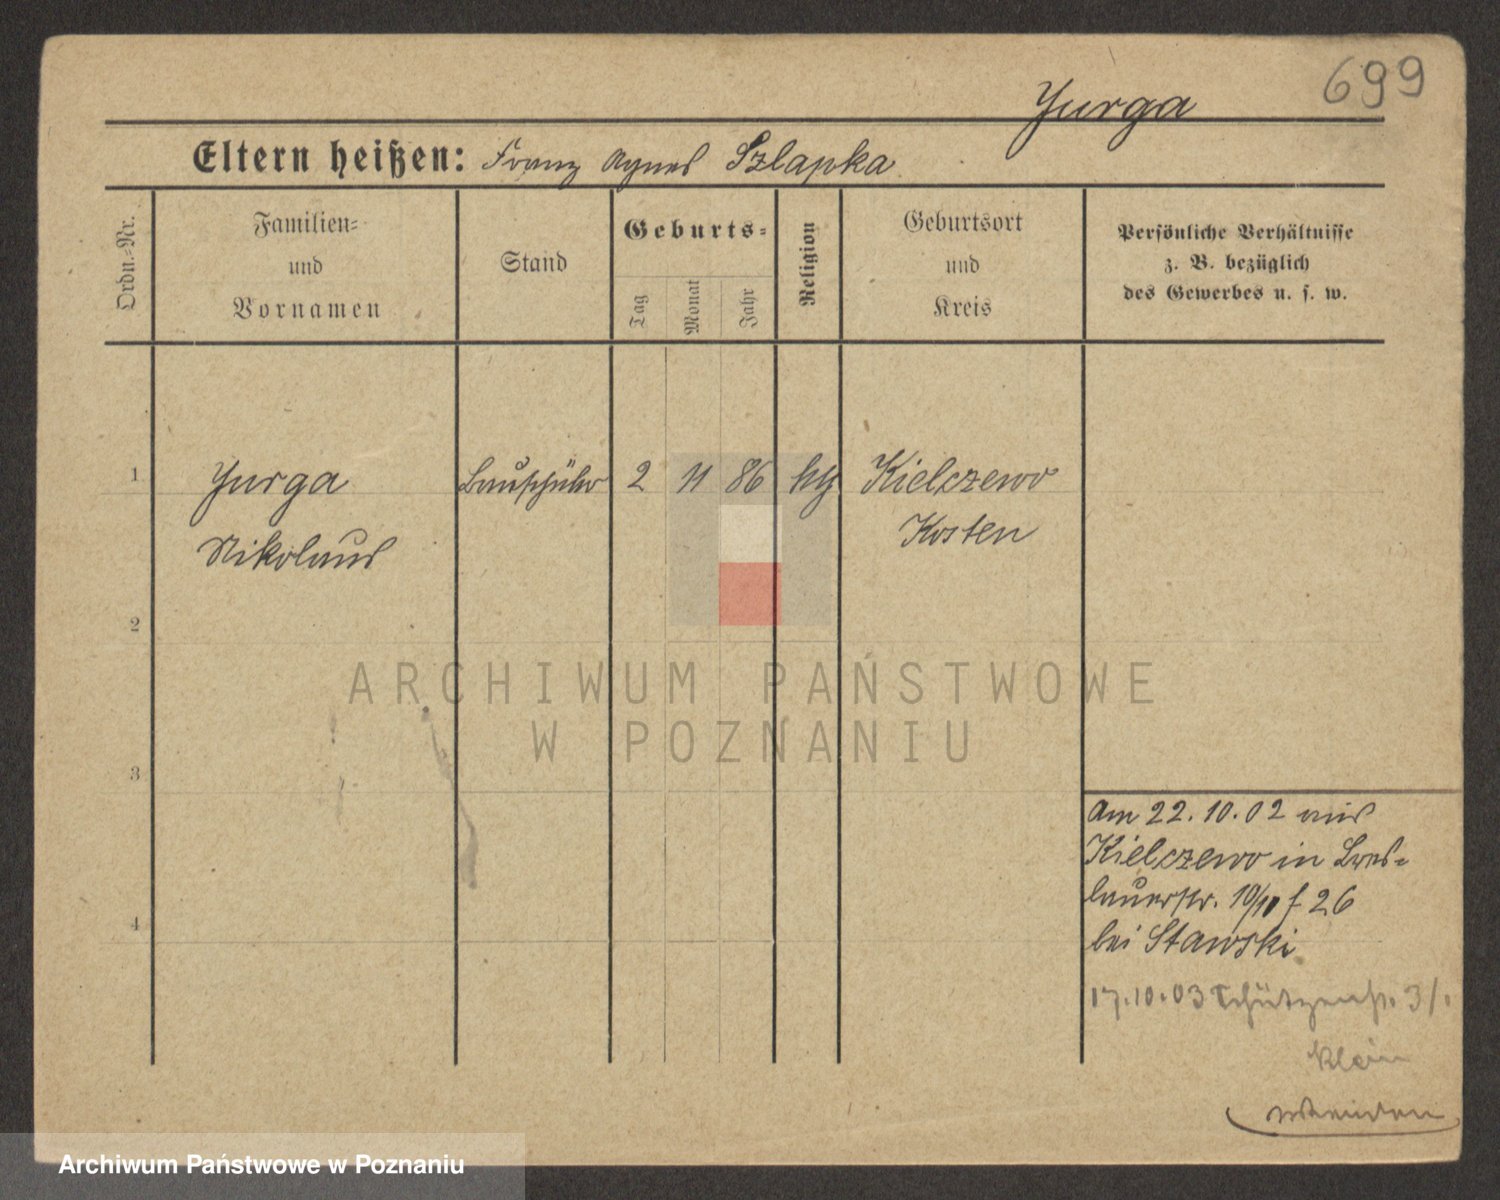 699
Yurga
Eltern heißen: Franz Agnes Szlapka
Ordn.-Nr.
Familien-
und
Vornamen
Stand
Geburts-
Tag
Monat
Jahr
Religion
Geburtsort
und
Kreis
Persönliche Verhältnisse
z. B. bezüglich
des Gewerbes u. s. w.
1
Yurga
2 11 86 kth
Kielczewo
Nikolaus
Kosten
2
ARCHIWUM PAŃSTWOWE
W POZNANIU
3
Am 22. 10. 02 aus
Kielczewo in Bres-
lauerstr. 10/11 f 26
4
bei Stawski
17.10.03 Schützenstr. 31.
Klein
Archiwum Państwowe w Poznaniu